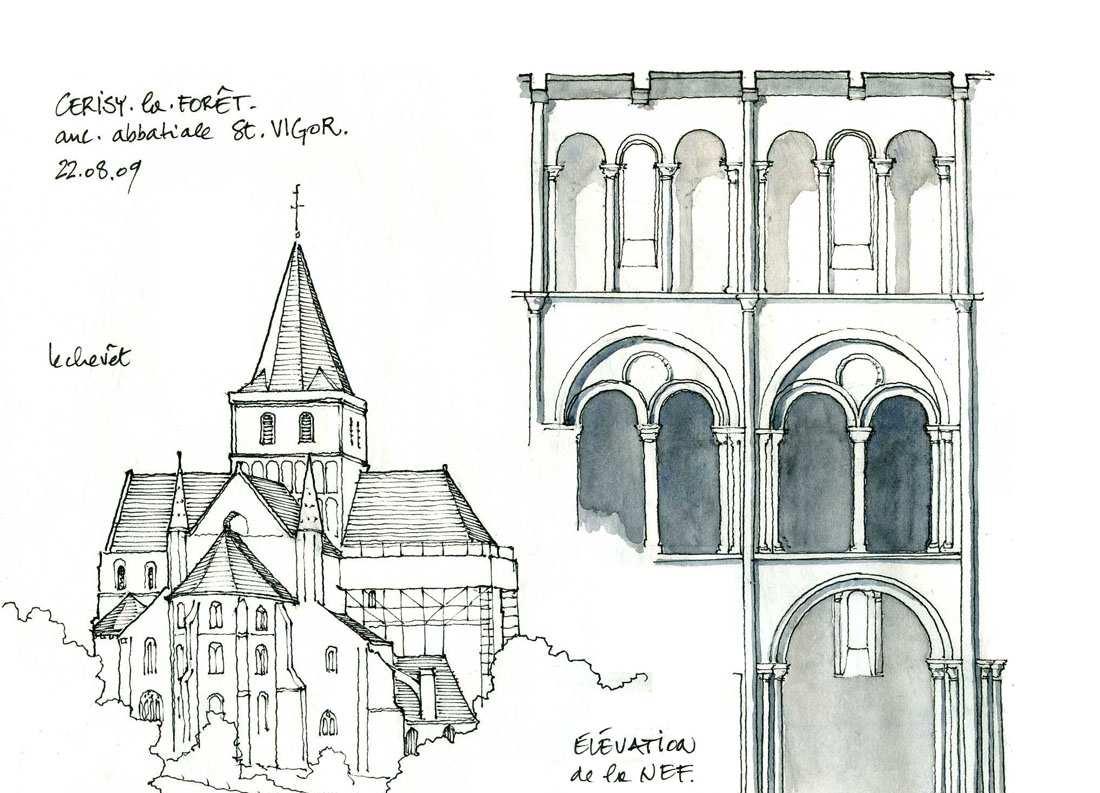 CERISY.la.FORÊT-
anc. abbatiale St. VIGOR.
22.08.09
le chevêt
ÉLÉVATION
de la NEF.